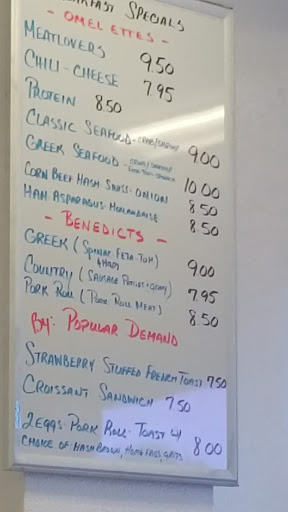 BREAKFAST SPECIALS
- OMELETTES -
MEATLOVERS 9.50
CHILI-CHEESE 7.95
PROTEIN 8.50
CLASSIC SEAFOOD - CRAB/SHRIMP 9.00
GREEK SEAFOOD - CRAB/SHRIMP 10.00
FETA-TOM-SPINACH
CORN BEEF HASH-SWISS-ONION 8.50
HAM-ASPARAGUS-HOLLANDAISE 8.50
- BENEDICTS -
GREEK (SPINACH-FETA-TOM) 9.00
+HAM
COUNTRY (SAUSAGE PATTIES+GRAVY) 7.95
PORK ROLL (PORK ROLL MEAT) 8.50
By: POPULAR DEMAND
STRAWBERRY STUFFED FRENCH TOAST 7.50
CROISSANT SANDWICH 7.50
2 EGGS-PORK ROLL-TOAST w/ 8.00
CHOICE OF HASH BROWN, HOME FRIES, GRITS